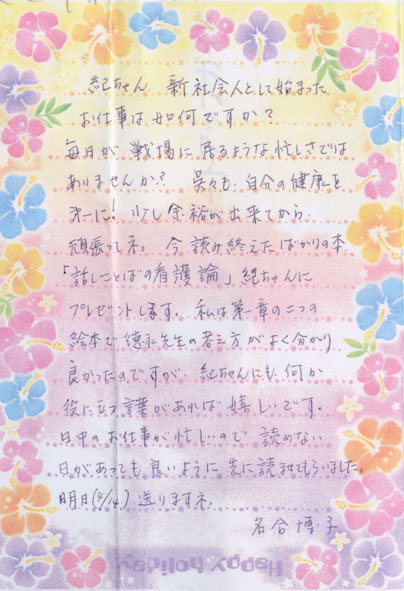 紀ちゃん 新社会人として始まった
お仕事は如何ですか?
毎日が戦場に居るような忙しさでは
ありませんか? 呉々も自分の健康を
第一に! 少し余裕が出来てから
頑張ってネ。今読み終えたばかりの本
「話しことばの看護論」紀ちゃんに
プレゼントします。私は第一章の二つの
絵本で徳永先生の考え方がよく分かり
良かったのですが 紀ちゃんにも何か
役に立つ言葉があれば嬉しいです。
日中のお仕事が忙しいので 読めない
日があっても良いように先に読ませてもらいました。
明日(4/14) 送りますネ。
名合博子
Happy holiday